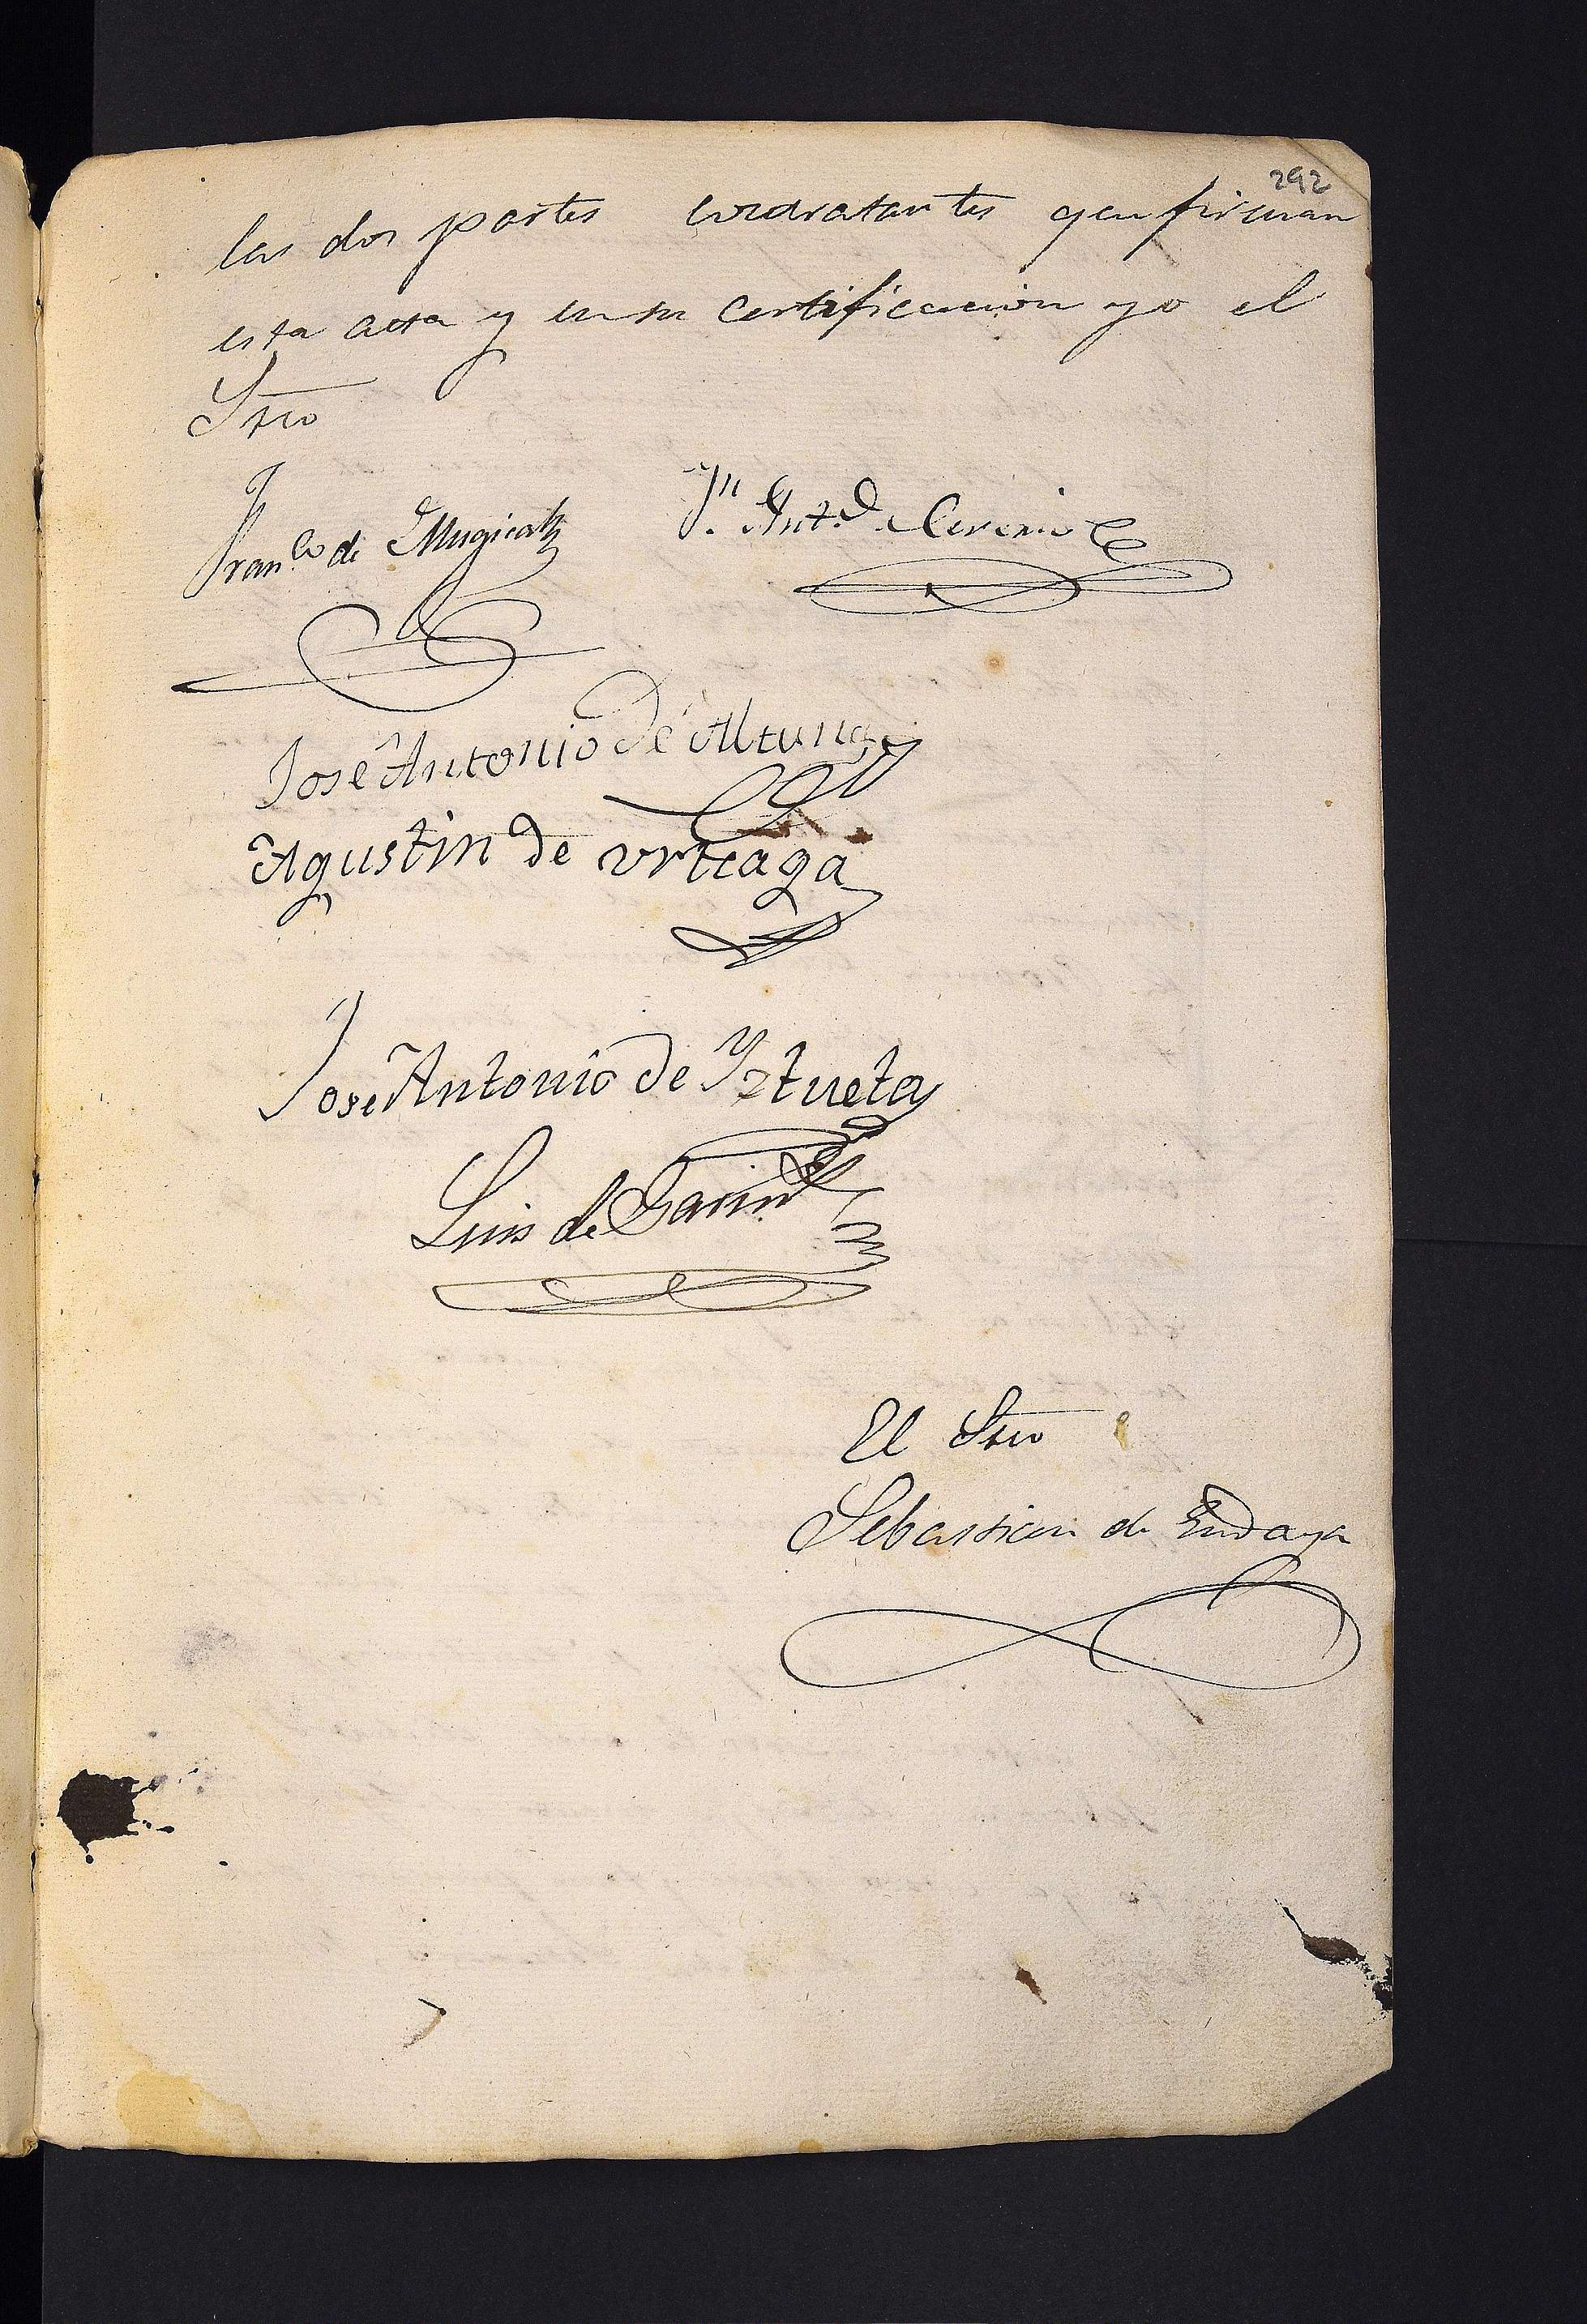 292
las dos partes contratantes que firman
esta acta y en su certificacion yo el
Strio
Fran.co de Mugica
Jn. Ant.o Cerenio
José Antonio de Altuna
Agustin de Urteaga
José Antonio de Yztueta
Luis de Garin
El Strio
Sebastian de Endaya